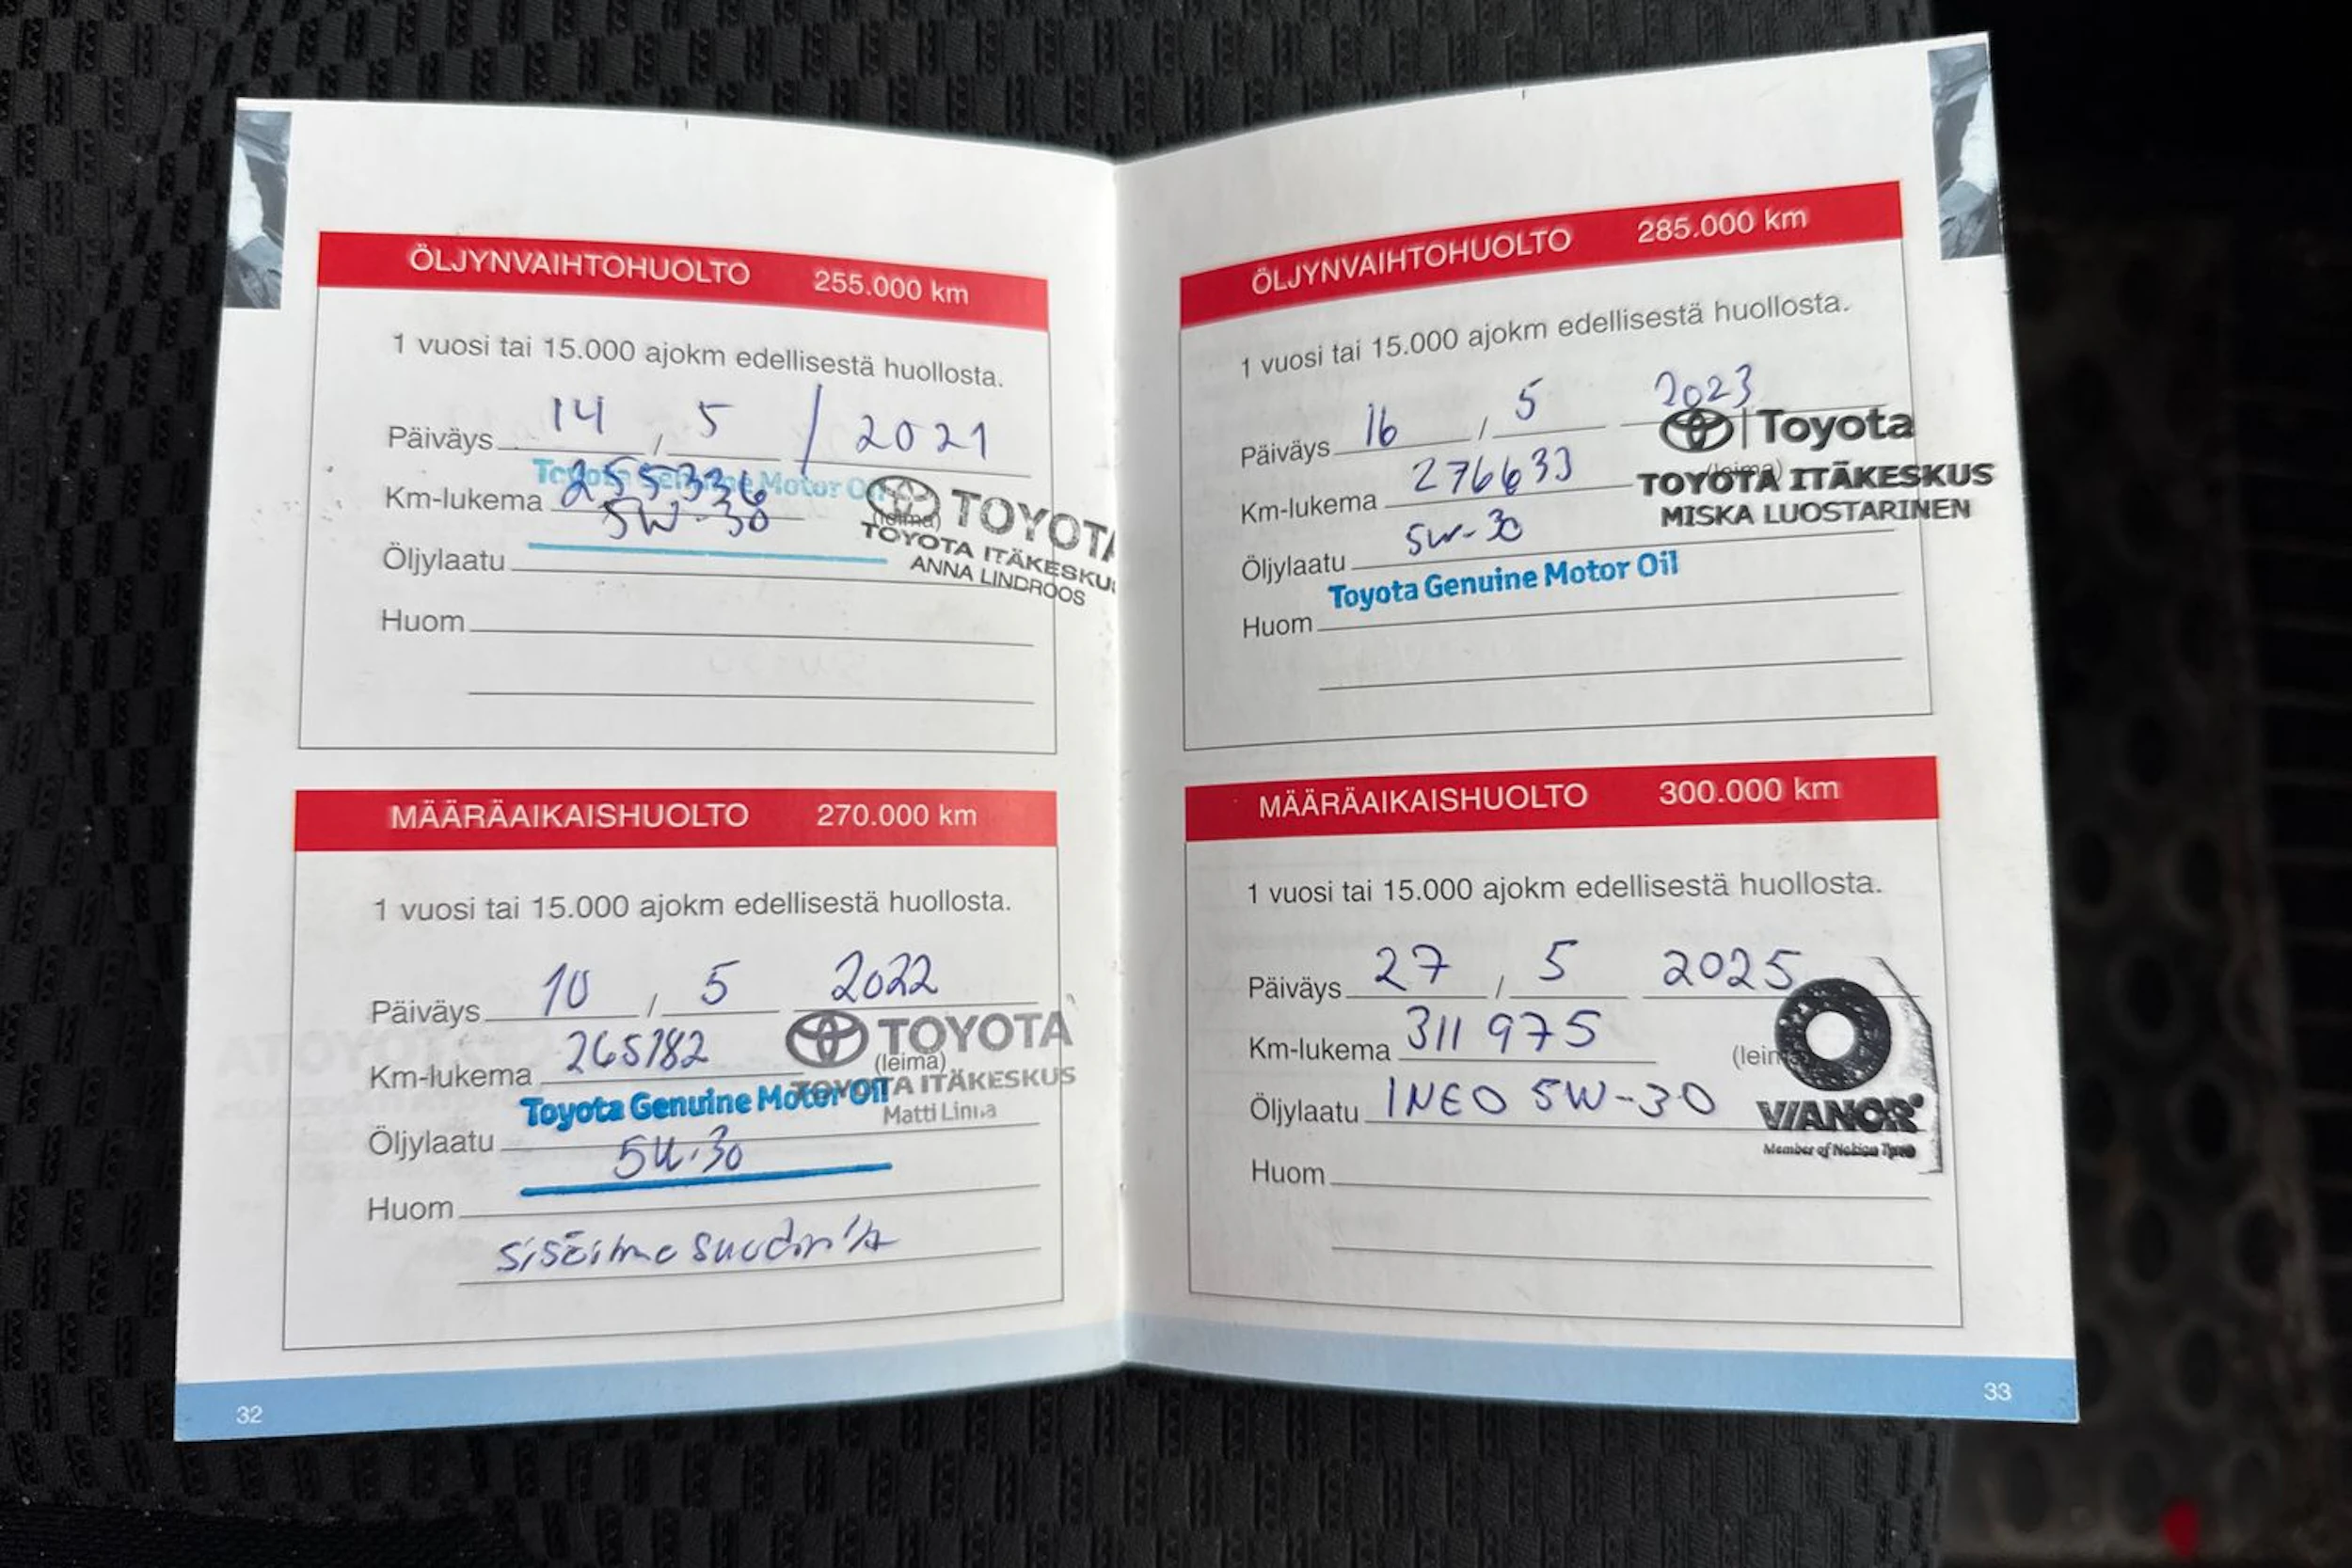 ÖLJYNVAIHTOHUOLTO 255.000 km
1 vuosi tai 15.000 ajokm edellisestä huollosta.
Päiväys 14 / 5 / 2021
Toyota Genuine Motor Oil
Km-lukema 255336
5W-30
(leima)
TOYOTA
TOYOTA ITÄKESKUS
ANNA LINDROOS
Öljylaatu
Huom
MÄÄRÄAIKAISHUOLTO 270.000 km
1 vuosi tai 15.000 ajokm edellisestä huollosta.
Päiväys 10 / 5 2022
TOYOTA
Km-lukema 265782
(leima)
TOYOTA ITÄKESKUS
Toyota Genuine Motor Oil
Matti
Öljylaatu 5W-30
Huom
32
ÖLJYNVAIHTOHUOLTO 285.000 km
1 vuosi tai 15.000 ajokm edellisestä huollosta.
Päiväys 16 / 5 2023
Toyota
Km-lukema 276633
(leima)
TOYOTA ITÄKESKUS
MISKA LUOSTARINEN
Öljylaatu 5W-30
Toyota Genuine Motor Oil
Huom
MÄÄRÄAIKAISHUOLTO 300.000 km
1 vuosi tai 15.000 ajokm edellisestä huollosta.
Päiväys 27 / 5 2025
Km-lukema 311 975
(leima)
Öljylaatu INEO 5W-30
VIANOR
Member of Nokian Tyres
Huom
33